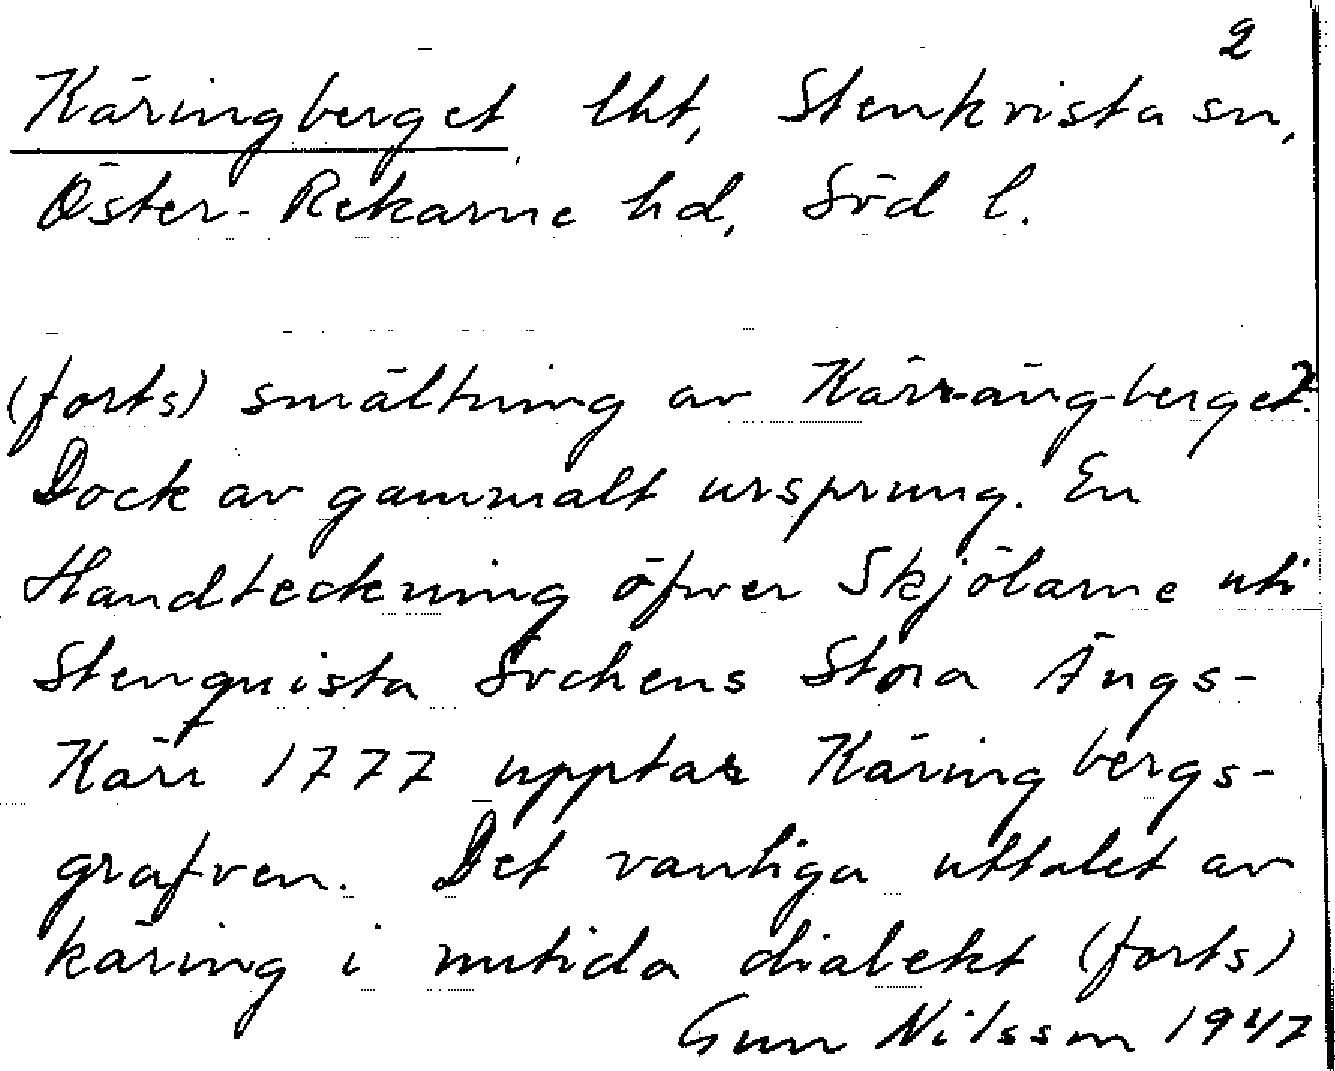 2
Käringberget lht, Stenkvista sn,
Öster-Rekarne hd, Söd l.
(forts) smältning av Kärr-äng-berget?
Dock av gammalt ursprung. En
Handteckning öfwer Skjölarne uti
Stenquista Sochens Stora Ängs-
Kärr 1777 upptar Käringbergs-
grafven. Det vanliga uttalet av
käring i nutida dialekt (forts)
Gun Nilsson 1947